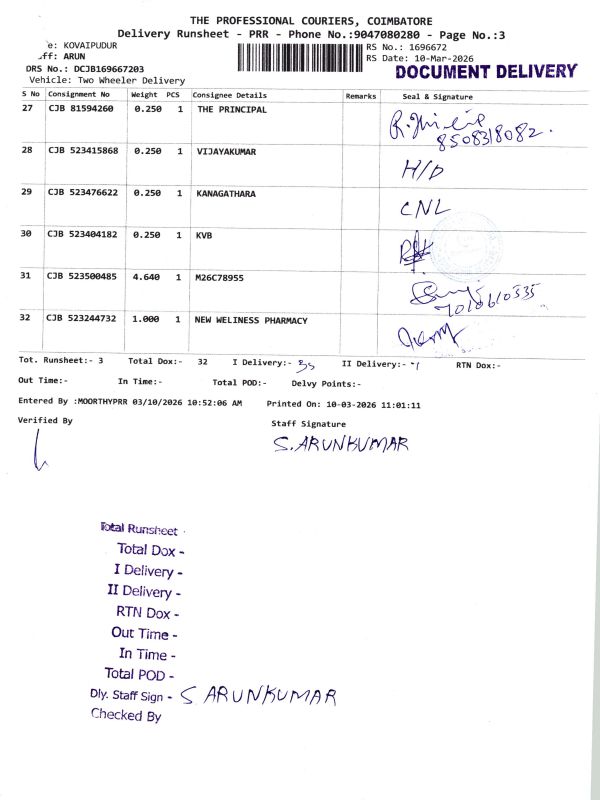 THE PROFESSIONAL COURIERS, COIMBATORE
Delivery Runsheet - PRR - Phone No.:9047080280 - Page No.:3
e: KOVAIPUDUR RS No.: 1696672
ff: ARUN RS Date: 10-Mar-2026
DRS No.: DCJB169667203 DOCUMENT DELIVERY
Vehicle: Two Wheeler Delivery
S No Consignment No Weight PCS Consignee Details Remarks Seal & Signature
27 CJB 81594260 0.250 1 THE PRINCIPAL
8508318082.
28 CJB 523415868 0.250 1 VIJAYAKUMAR H/D
29 CJB 523476622 0.250 1 KANAGATHARA CNL
30 CJB 523404182 0.250 1 KVB
31 CJB 523500485 4.640 1 M26C78955
7010610535
32 CJB 523244732 1.000 1 NEW WELINESS PHARMACY
Tot. Runsheet:- 3 Total Dox:- 32 I Delivery:- II Delivery:- RTN Dox:-
Out Time:- In Time:- Total POD:- Delvy Points:-
Entered By :MOORTHYPRR 03/10/2026 10:52:06 AM Printed On: 10-03-2026 11:01:11
Verified By Staff Signature
S. ARUNKUMAR
Total Runsheet -
Total Dox -
I Delivery -
II Delivery -
RTN Dox -
Out Time -
In Time -
Total POD -
Dly. Staff Sign - S ARUNKUMAR
Checked By